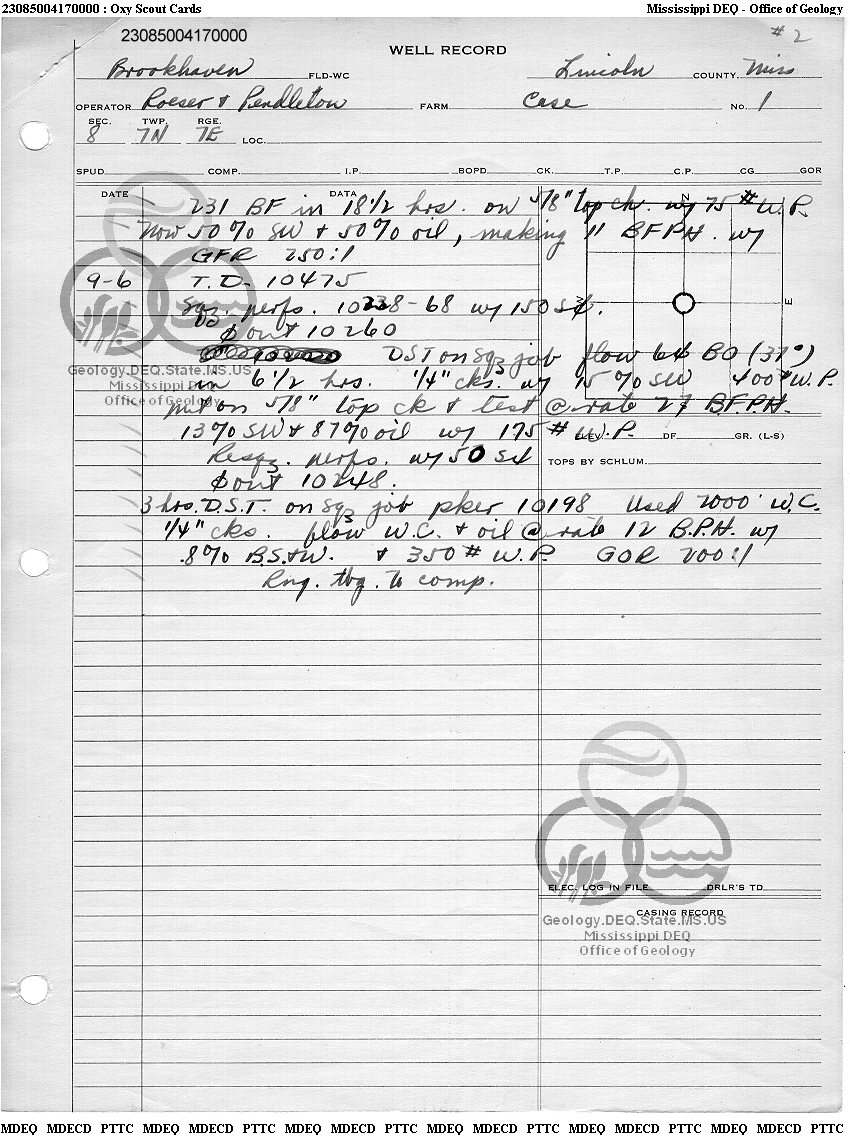 23085004170000 : Oxy Scout Cards Mississippi DEQ - Office of Geology
23085004170000 #2
WELL RECORD
Brookhaven FLD-WC Lincoln COUNTY, Miss
OPERATOR Roeser & Pendleton FARM Case No. 1
SEC. TWP. RGE.
8 7N 7E LOC.
SPUD COMP. I.P. BOPD CK. T.P. C.P. CG GOR
DATE DATA
231 BF in 18 1/2 hrs. on 5/8" top ch. w/ 75 # W.P.
N
Now 50% SW & 50% oil, making 11 BFPH. w/
GFR 250:1
9-6 T.D. 10475
E
Sqz. perfs. 10238-68 w/ 150 sx.
φ out 10260
DST on Sqz job flow 64 BO (37°)
in 6 1/2 hrs. 1/4" cks. w/ 15% SW 400 # W.P.
Put on 5/8" top ck & test @ rate 27 B.F.P.H.
13% SW & 87% oil w/ 175 # W.P.
ELEV. DF GR. (L-S)
Resqz. perfs. w/ 50 sx
TOPS BY SCHLUM.
φ out 10248.
3 hrs. D.S.T. on Sqz job pker 10198 Used 2000' W.C.
1/4" cks. flow W.C. & oil @ rate 12 B.P.H. w/
.8% B.S.&W. & 350 # W.P. GOR 200:1
Rng. tbg. to comp.
Geology.DEQ.State.MS.US
Mississippi DEQ
Office of Geology
ELEC. LOG IN FILE DRLR'S TD
CASING RECORD
Geology.DEQ.State.MS.US
Mississippi DEQ
Office of Geology
MDEQ MDECD PTTC MDEQ MDECD PTTC MDEQ MDECD PTTC MDEQ MDECD PTTC MDEQ MDECD PTTC MDEQ MDECD PTTC